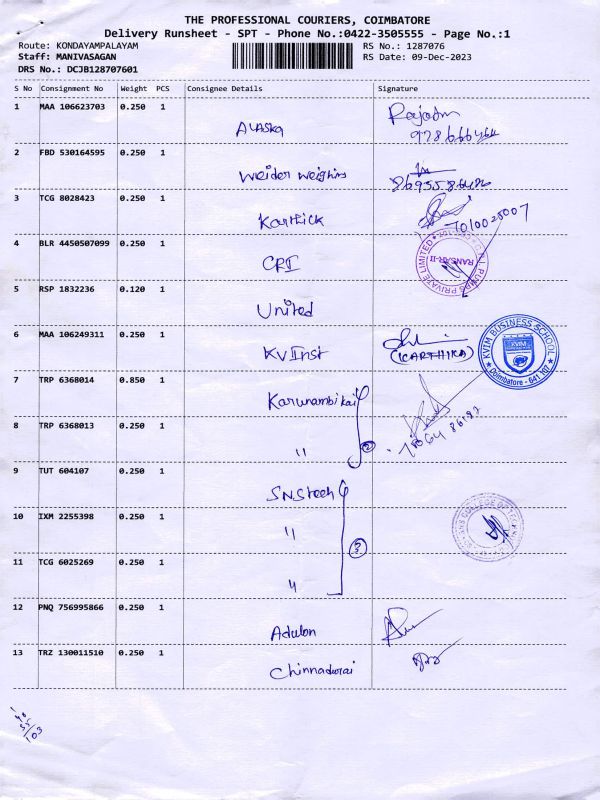 THE PROFESSIONAL COURIERS, COIMBATORE
Delivery Runsheet - SPT - Phone No.:0422-3505555 - Page No.:1
Route: KONDAYAMPALAYAM RS No.: 1287076
Staff: MANIVASAGAN RS Date: 09-Dec-2023
DRS No.: DCJB128707601
S No Consignment No Weight PCS Consignee Details Signature
1 MAA 106623703 0.250 1
Alaska
2 FBD 530164595 0.250 1
Weider Weighins
3 TCG 8028423 0.250 1
Karthick
7010025007
4 BLR 4450507099 0.250 1
CRI
5 RSP 1832236 0.120 1
United
6 MAA 106249311 0.250 1
KV Inst (KARTHIKA)
KVIM BUSINESS SCHOOL
KVIM
Coimbatore - 641 107
7 TRP 6368014 0.850 1
Karunambikai
8 TRP 6368013 0.250 1
" 2
9 TUT 604107 0.250 1
SNS tech
10 IXM 2255398 0.250 1
"
3
11 TCG 6025269 0.250 1
"
12 PNQ 756995866 0.250 1
Adulon
13 TRZ 130011510 0.250 1
Chinnadurai